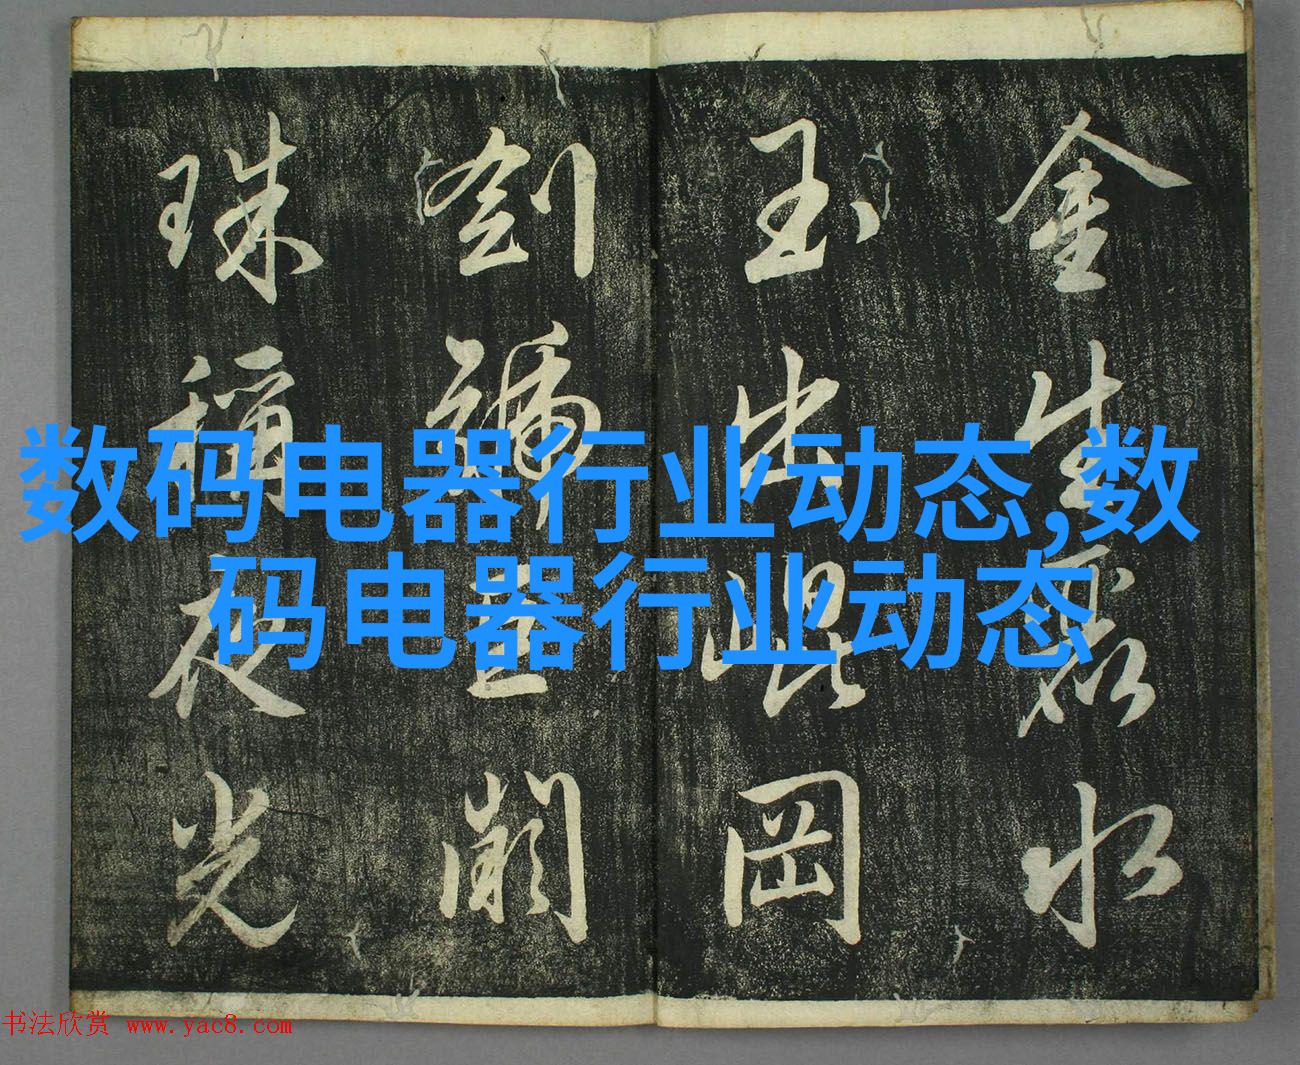 金生麗水
玉出崑岡
劍號巨闕
珠稱夜光
数码电器行业动态,数
码电器行业动态
书法欣赏 www.yac8.com